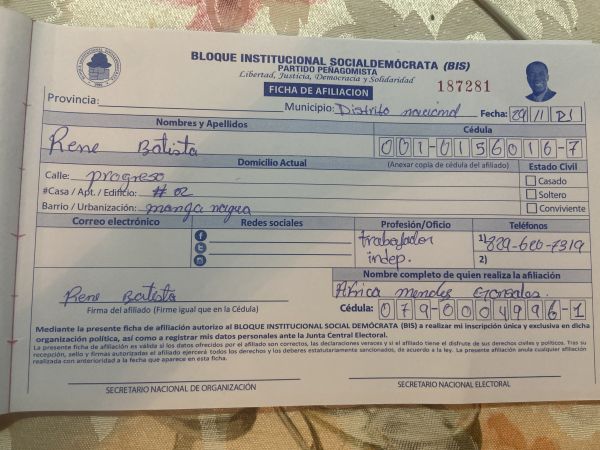 BLOQUE INSTITUCIONAL SOCIALDEMÓCRATA (BIS)
PARTIDO PEÑAGOMISTA
Libertad, Justicia, Democracia y Solidaridad
FICHA DE AFILIACION
187281
Provincia: Municipio: Distrito nacional Fecha: 29/11/21
Nombres y Apellidos Cédula
Rene Batista 001-0156016-7
Domicilio Actual (Anexar copia de cédula del afiliado) Estado Civil
Calle: progreso Casado
#Casa / Apt. / Edificio: # 02 Soltero
Barrio / Urbanización: manga nagua Conviviente
Correo electrónico Redes sociales Profesión/Oficio Teléfonos
trabajador 1) 829-660-7319
indep. 2)
Nombre completo de quien realiza la afiliación
Rene Batista Africa mendez Gonzales.
Firma del afiliado (Firme igual que en la Cédula) Cédula: 079-0004996-1
Mediante la presente ficha de afiliación autorizo al BLOQUE INSTITUCIONAL SOCIAL DEMÓCRATA (BIS) a realizar mi inscripción única y exclusiva en dicha
organización política, así como a registrar mis datos personales ante la Junta Central Electoral.
La presente ficha de afiliación es válida si los datos ofrecidos por el afiliado son correctos, las declaraciones veraces y si el afiliado tiene el disfrute de sus derechos civiles y políticos. Tras su
recepción, sello y firmas autorizadas el afiliado ejercerá todos los derechos y los deberes estatutariamente sancionados, de acuerdo a la ley. La presente afiliación anula cualquier afiliación
realizada con anterioridad a la fecha que aparece en esta ficha.
SECRETARIO NACIONAL DE ORGANIZACIÓN SECRETARIO NACIONAL ELECTORAL